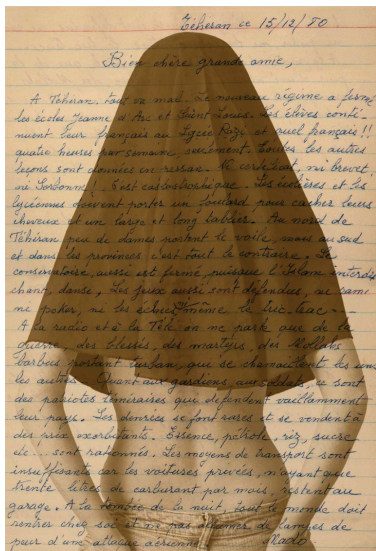 Téhéran ce 15/12/80
Bien chère grande amie,
A Téhéran tout va mal. Le nouveau régime a fermé
les écoles Jeanne d'Arc et Saint Louis. Les élèves conti-
nuent leur français au lycée Razi et quel français!!
quatre heures par semaine, seulement. Toutes les autres
leçons sont données en persan. Ni certificat, ni brevet,
ni Sorbonne! C'est catastrophique. Les écolières et les
lycéennes doivent porter un foulard pour cacher leurs
cheveux et un large et long tablier. Au nord de
Téhéran peu de dames portent le voile, mais au sud
et dans les provinces c'est tout le contraire. Le
conservatoire, aussi est fermé, puisque l'Islam interdit
chant, danse. Les jeux aussi sont défendus, ni carte
ni poker, ni les échecs, même le tric-trac.
A la radio et à la Télé on ne parle que de la
guerre, des blessés, des martyrs, des Mollahs
barbus portant turban, que se chamaillent les uns
les autres. Quant aux gardiens, aux soldats, ce sont
des patriotes téméraires que défendent vaillamment
leur pays. Les denrées se font rares et se vendent à
des prix exorbitants. Essence, pétrole, riz, sucre
etc. sont rationnés. Les moyens de transport sont
insuffisants car les voitures privées, n'ayant que
trente litres de carburant par mois, restent au
garage. A la tombée de la nuit, tout le monde doit
rentrer chez soi et ne pas allumer de lampes de
peur d'une attaque aérienne. Mado